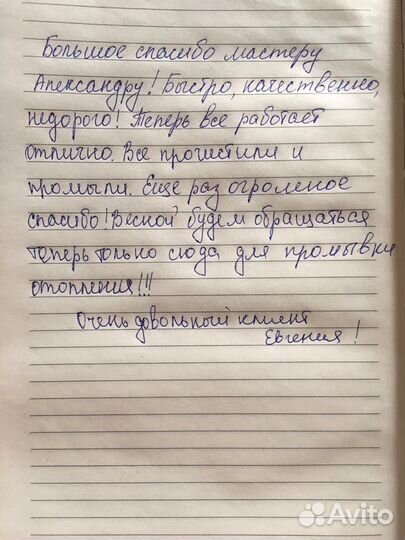 Большое спасибо мастеру
Александру! Быстро, качественно,
недорого! Теперь все работает
отлично. Все прочистили и
промыли. Еще раз огромное
спасибо! Весной будем обращаться
теперь только сюда для промывки
отопления!!!
Очень довольный клиент
Евгения!
Avito